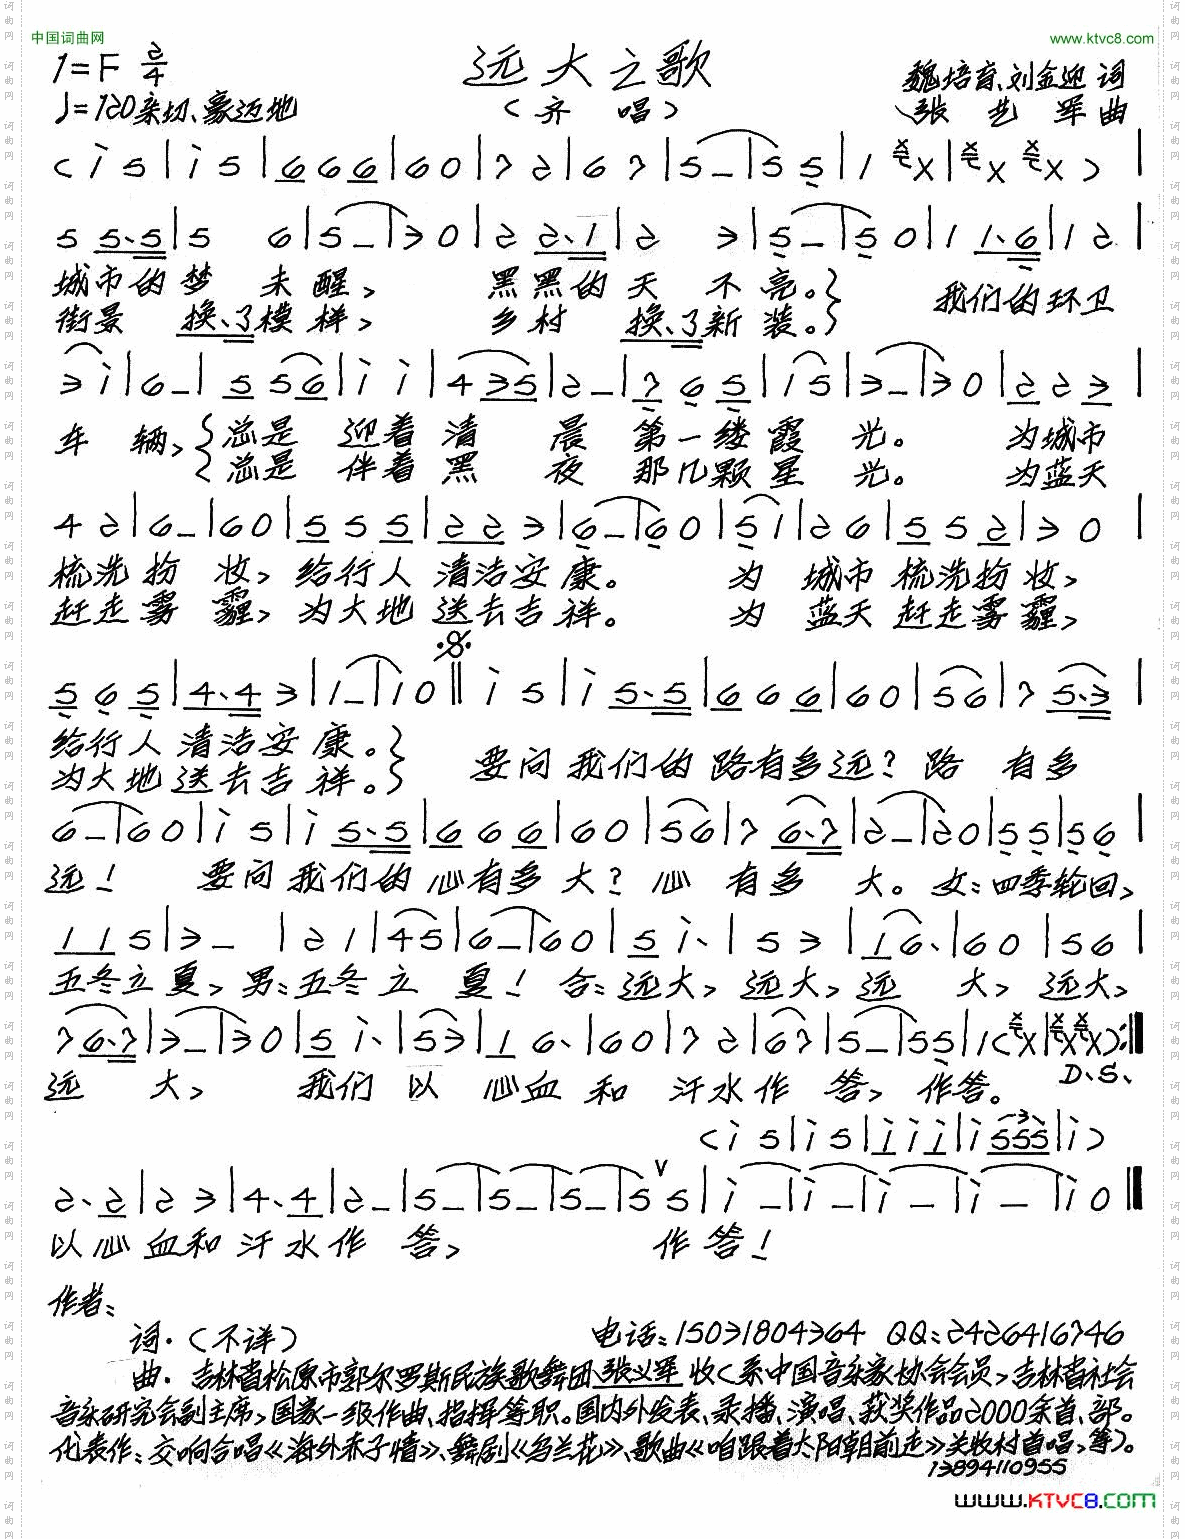 中国词曲网
www.ktvc8.com
1=F 2/4
远大之歌
魏培育、刘金迎 词
♩=120亲切、豪迈地
（齐 唱）
张艺军曲
(i 5|i 5|6 6 6|6 0|7 2|6 7|5 –|5 5|1 X X|X X X X)|
5 5·5|5 6|5 –|3 0|2 2·1|2 3|5 –|5 0|1 1·6|1 2|
城市的梦 未醒， 黑黑的天 不亮。 我们的环卫
街景 换、了模样， 乡村 换、了新装。
3 i|6 –|5 5 6|i i|4 3 5|2 –|7 6 5|1 5|3 –|3 0|2 2 3|
车 辆，总是 迎着清 晨 第一缕霞 光。 为城市
总是 伴着黑 夜 那几颗星 光。 为蓝天
4 2|6 –|6 0|5 5 5|2 2 3|6 –|6 0|5 1|2 6|5 5 2|3 0|
梳洗扮 妆，给行人 清洁安康。 为 城市 梳洗扮妆，
赶走雾 霾，为大地 送去吉祥。 为 蓝天 赶走雾霾，
5 6 5|4·4 3|1 –|1 0‖i 5|i 5·5|6 6 6|6 0|5 6|7 5·3|
给行人 清洁安 康。
为大地 送去吉 祥。 要问 我们的 路有多远？路 有多
6 –|6 0|i 5|i 5·5|6 6 6|6 0|5 6|7 6·7|2 –|2 0|5 5|5 6|
远！ 要问 我们的 心有多 大？心 有多 大。女：四季轮回，
1 1 5|3 –|2 1|4 5|6 –|6 0|5 i·|5 3|1 6·|6 0|5 6|
五冬立 夏，男：五冬 立 夏！合：远大，远大，远 大，远大，
7 6·7|3 –|3 0|5 i·|5 3|1 6·|6 0|7 2|6 7|5 –|5 5|1 (X|X X X X):‖
远 大， 我们 以 心血 和 汗水作 答，作答。 D、S、
(i 5|i 5|i i i|i 555|i)
2·2|2 3|4·4|2 –|5 –|5 –|5 –|5 5|i –|i –|i –|i –|i 0‖
以心血和 汗水作 答， 作答！
作者：
词·（不详） 电话：15031804364 QQ：2426416746
曲·吉林省松原市郭尔罗斯民族歌舞团张义军 收（系中国音乐家协会会员，吉林省社会
音乐研究会副主席，国家一级作曲、指挥等职。国内外发表、录播、演唱、获奖作品2000余首、部。
代表作：交响合唱《海外赤子情》、舞剧《乌兰花》、歌曲《咱跟着太阳朝前走》关牧村首唱，等）。
13894110955
www.KTVC8.com